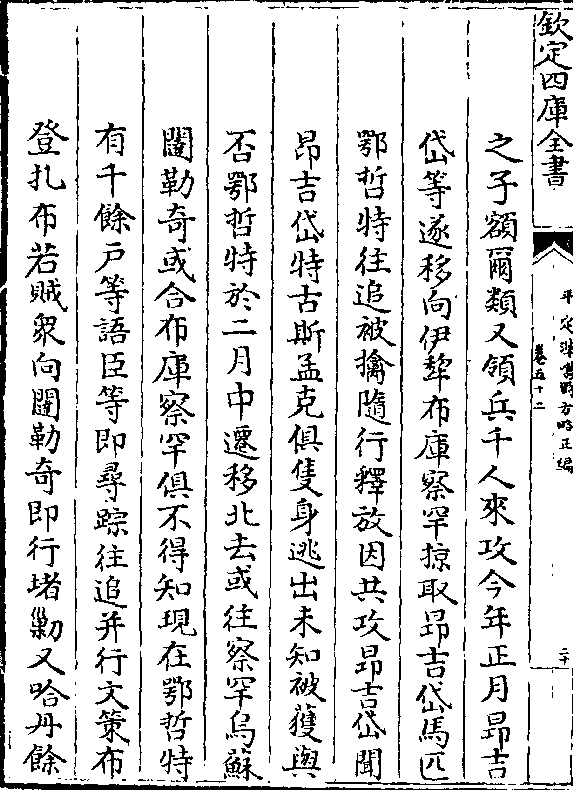 欽定四庫全書
平定準噶爾方略正編
卷五十二
二十
之子額爾類又領兵千人來攻今年正月昂吉
岱等遂移向伊犂布庫察罕掠取昂吉岱馬匹
鄂哲特往追被擒隨行釋放因共攻昂吉岱聞
昂吉岱特古斯孟克俱隻身逃出未知被獲與
否鄂哲特於二月中遷移北去或往察罕烏蘇
闥勒奇或合布庫察罕俱不得知現在鄂哲特
有千餘戶等語臣等即尋踪往追并行文策布
登扎布若賊衆向闥勒奇即行堵勦又哈丹餘